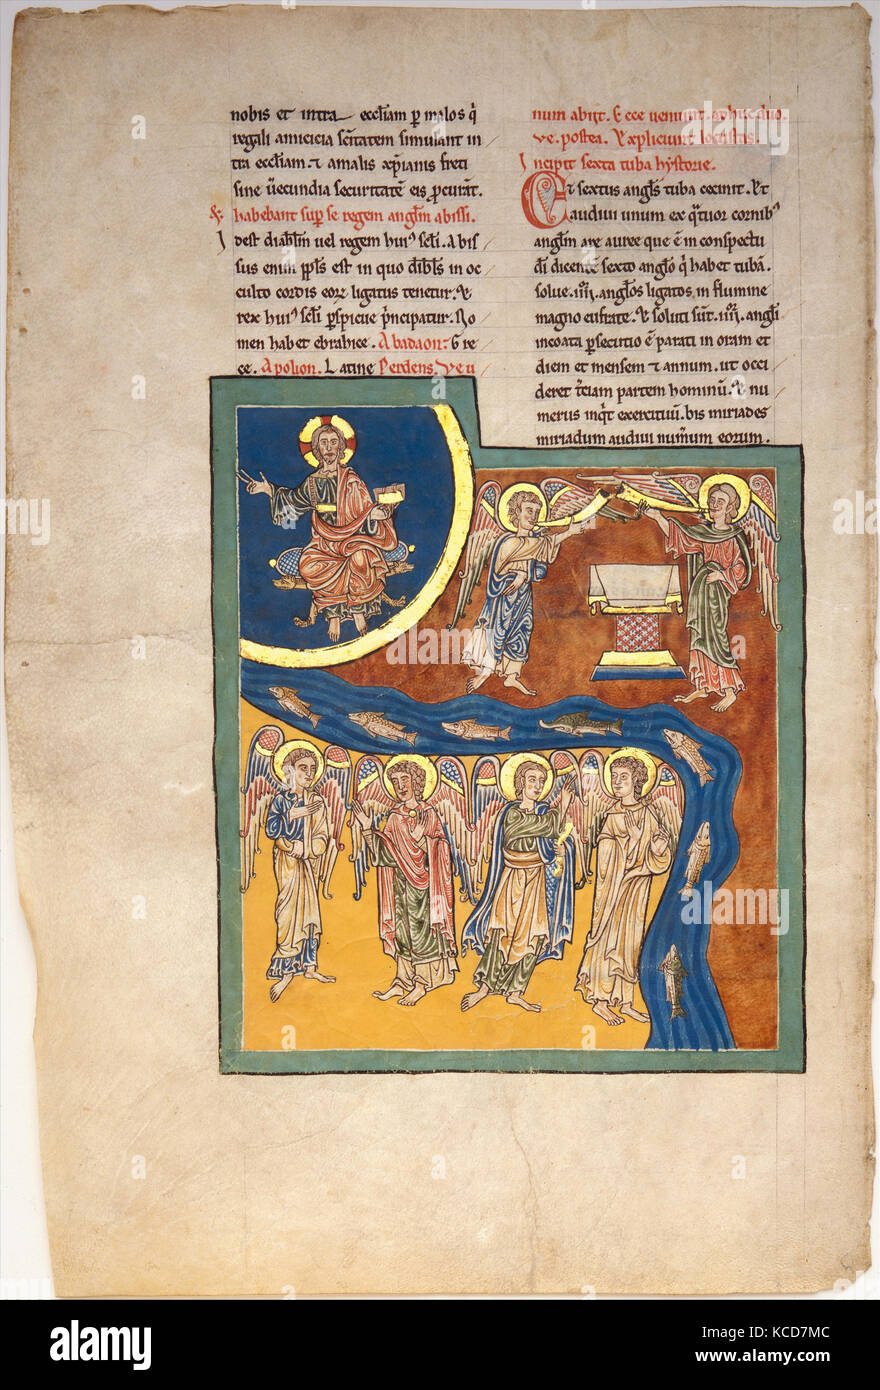 nobis et intra eccl̄iam p̱ malos q̄
regali amicicia sc̄itatem simulant in
tra eccl̄iam. ⁊ amalis xp̄ianis freti
sine ūecundia securitatē eis p̱curāt.
& habebant sup̱ se regem angl̄m abissi.
Idest diabl̄m uel regem hui⁹ sc̄li. Abis
sus enim ppl̄s est in quo diābl̄s in oc
culto cordis eoꝝ ligatus tenetur. &
rex hui⁹ sc̄li p̱spicue p̄ncipatur. No
men habet ebrahice. Abadaon: Gre
ce. Apolion. Latine Perdens. Ve u
num abijt. & ecce ueniunt adhuc duo
ve. postea. Expliciunt locustas.
Incipit sexta tuba hystorie.
Et sextus angl̄s tuba cecinit. Et
audiui unum ex q̄tuor cornib⁹
angl̄m are auree que ē in conspectu
dī dicentē sexto angl̄o q̄ habet tubā.
solue .iiiior. angl̄os ligatos in flumine
magno eufrate. & soluti sūt .iiiior. angl̄i
incoata p̱secutio ē parati in oram et
diem et mensem et annum. ut occi
deret t̄ciam partem hominū. & nu
merus inq̄t exercituū. bis miriades
miriadum audiui num̄um eorum.
alamy
alamy
Image ID: KCD7MC
www.alamy.com